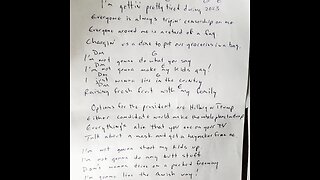 G
I'm gettin' pretty tired during 2023
Everyone is always tripin' censorship on me
Everyone around me is a of a fag
Chargin' us a dime to put our groceries in a bag.
Dm G
I'm not gonna do what you say
Dm
I'm not gonna make my kids gay!
Dm G
I just wanna live in the country
Dm
Raising fresh fruit with my family
Options for the president are Hillary or Trump
Either candidate would make the whole place
Everything's also that you see on your TV
Talk about a mask and get a haymaker from me
I'm not gonna shoot my kids up
I'm not gonna do any butt stuff
Don't wanna on a packed freeway
I'm gonna live the Amish way!